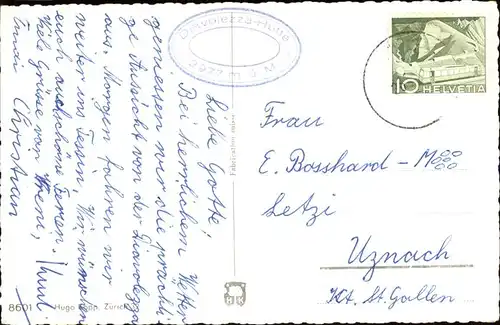 Liebe Gotte!
Bei herrlichem Wetter
geniessen wir die prächti-
ge Aussicht von der Diavolezza
aus. Morgen fahren wir
weiter ins Tessin. Wir wünschen
euch auch schöne Ferien.
Viele Grüsse von Vreni,
Christian
Diavolezza-Hütte
2977 m ü. M.
HELVETIA
10
Frau
E. Bosshard-Moos
Letzi
Uznach
Kt. St. Gallen
Fabrication suisse
8601 Hugo Kopp, Zürich